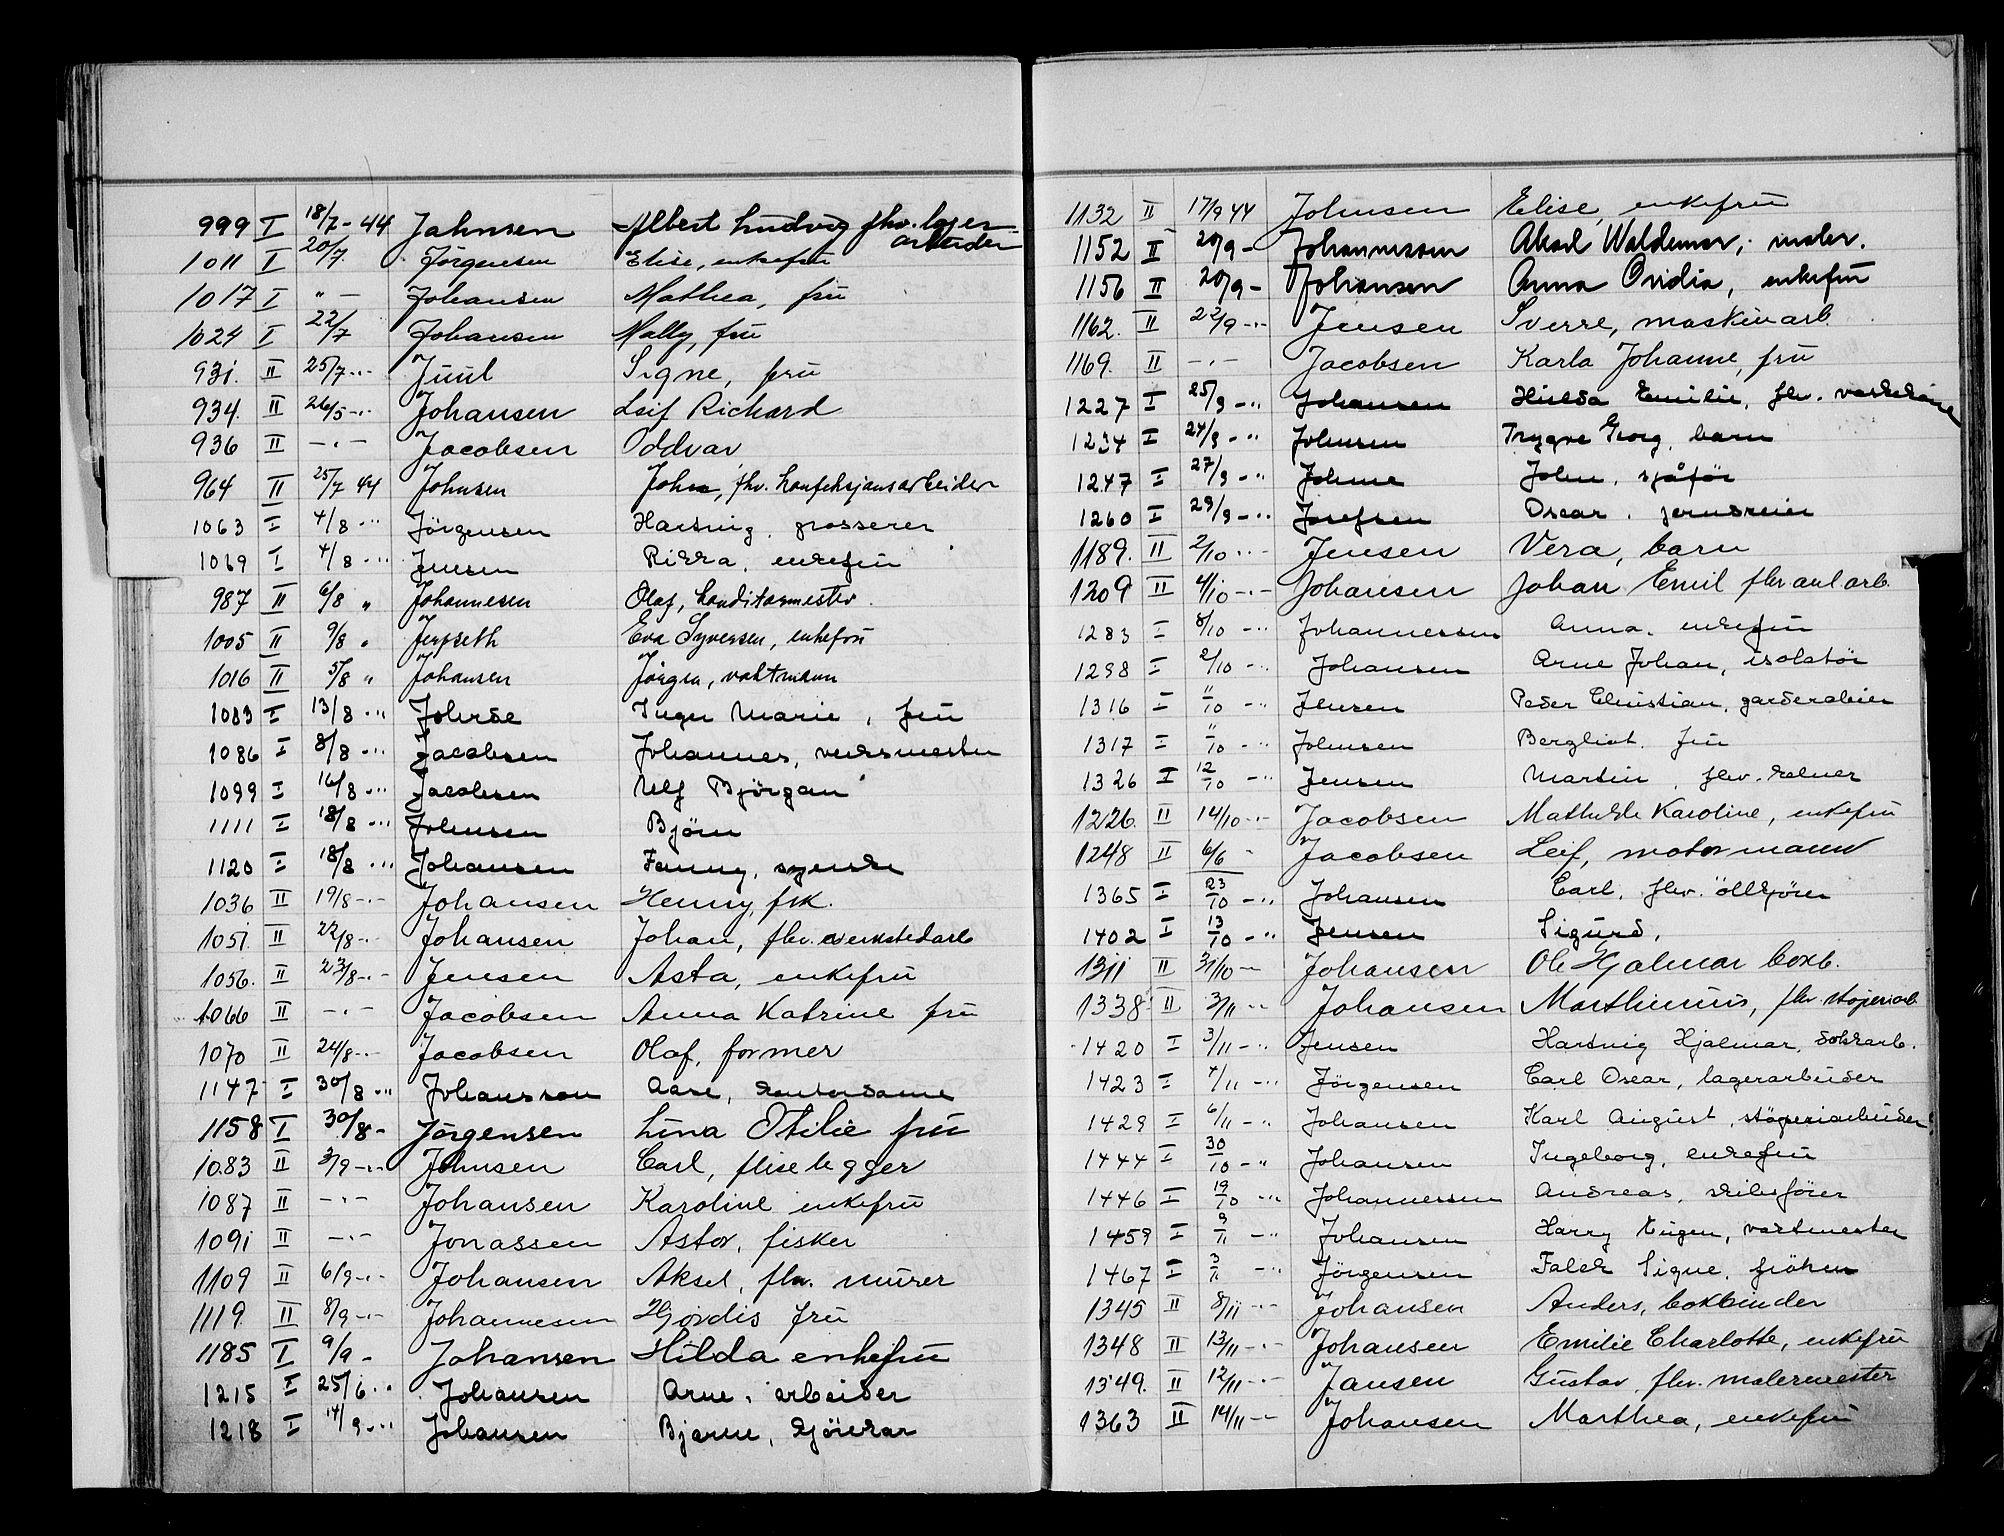 999 I 18/7-44 Jahnsen Albert Ludvig fhv. lager-
arbeider
1011 I 20/7. Jörgensen Elise, enkefru
1017 I " — Johansen Mathea, fru
1024 I 22/7 Johansen Mally, fru
931. II 25/7-.- Juul Signe, fru
934. II 26/5-.. Johansen Leif Richard
936 II -.- Jacobsen Oddvar
964 II 25/7 44 Johnsen John, fhv. konfeksjonsarbeider
1063 I 4/8 -.. Jörgensen Hartvig, grosserer
1069 I 4/8 -.. Jensen Rikka, enkefru
987 II 6/8 " Johannesen Olaf, konditormester.
1005 II 9/8 " Jerpseth Eva Syversen, enkefru
1016 II 5/8 " Johansen Jörgen, vaktmann
1083 I 13/8 -.. Johrde Inger Marie, fru
1086 I 8/8 -.. Jacobsen Johannes, verksmester
1099 I 16/8 -.. Jacobsen Ulf Björgan
1111 I 18/8 -.. Johnsen Björn
1120 I 18/8 -.. Johansen Fanny, syerske
1036 II 19/8-.- Johansen Henny, frk.
1051. II 22/8-.- Johansen Johan, fhv. verkstedarb
1056. II 23/8-.- Jensen Asta, enkefru
1066 II -.- Jacobsen Anna Katrine fru
1070 II 24/8-.- Jacobsen Olaf, former
1147 I 30/8 -.. Johansson Aase, kontordame
1158 I 30/8- Jörgensen Lina Otilie fru
1083 II 2/9-.- Johnsen Carl, fliselegger
1087 II -.- Johansen Karoline enkefru
1091 II -.- Jonassen Astor, fisker
1109 II 6/9-.- Johansen Aksel, fhv. murer
1119. II 8/9-.- Johannesen Hjördis fru
1185 I 9/9 - Johansen Hilda enkefru
1215 I 25/6.. Johansen Arne, arbeider
1218 I 14/9 -.. Johansen Bjarne, kjörekar
1132 II 17/9 44 Johnsen Elise, enkefru
1152 II 20/9 - Johannessen Aksel Waldemar, maler.
1156 II 20/9- Johansen Anna Ovidia, enkefru
1162. II 22/9 -.. Jensen Sverre, maskinarb.
1169. II -.- Jacobsen Karla Johanne, fru
1227 I 25/9 -.. Johansen Hilda Emilie, fhv. vaskekone
1234 I 24/9 -.. Johnsen Trygve Georg, barn
1247 I 27/9 -.. Johne John, sjåför
1260 I 29/9 -.. Josefsen Oscar, jerndreier
1189. II 2/10 -.- Jensen Vera, barn
1209 II 4/10 -.- Johansen Johan Emil fhv anl arb.
1283 I 8/10 -.. Johannessen Anna, enkefru
1298 I 2/10 -.. Johansen Arne Johan, isolatör
1316 I 11/10 -.. Jensen Peder Christian, garderobeier
1317 I 11/10 -.. Johnsen Bergliot, fru
1326 I 12/10 -.. Jensen Martin, fhv. kelner
1226. II 14/10 -.- Jacobsen Mathilde Karoline, enkefru
1248 II 6/6 - Jacobsen Leif, motormann
1365 I 23/10 -.. Johansen Carl, fhv. ölkjörer
1402 I 13/10 -.. Jensen Sigurd,
1311 II 31/10 - Johansen Ole Hjalmar boxb.
1338 II 3/11 -.- Johansen Marthinius, fhv. støperiarb.
1420 I 3/11 -.. Jensen Hartvig Hjalmar, dokkarb.
1423 I 4/11 -.. Jörgensen Carl Oscar, lagerarbeider
1429 I 6/11 -.. Johansen Karl August, støperiarbeider
1444 I 30/10 -.. Johansen Ingeborg, enkefru
1446 I 19/10 -.. Johannessen Andreas, skibsförer
1459 I 9/11 -.. Johansen Harry Eugen, vaktmester
1467 I 3/11 -.. Jörgensen Falck Signe, fröken
1345 II 8/11 -.- Johansen Anders, bokbinder
1348 II 13/11 -.- Johansen Emilie Charlotte, enkefru
1349. II 12/11 -.- Jansen Gustav, fhv. malermester
1363 II 14/11 -.- Johansen Marthea, enkefru